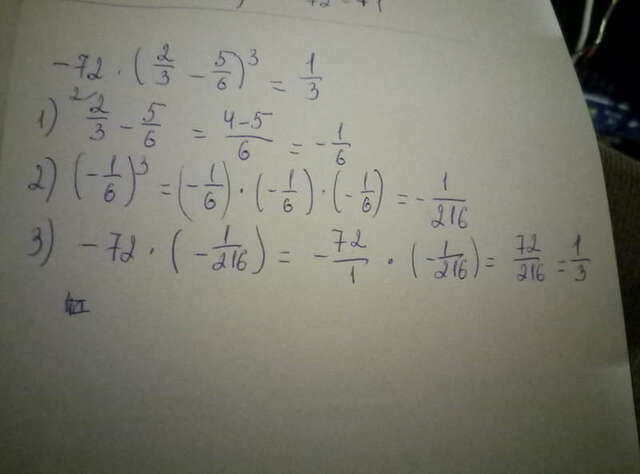 -72 · (2/3 - 5/6)³ = 1/3
1) ²⁄ 2/3 - 5/6 = (4-5)/6 = -1/6
2) (-1/6)³ = (-1/6) · (-1/6) · (-1/6) = -1/216
3) -72 · (-1/216) = -72/1 · (-1/216) = 72/216 = 1/3